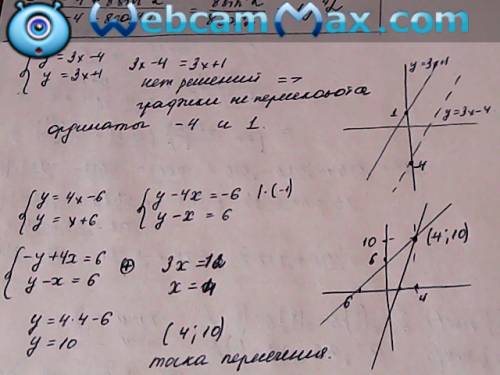 WebcamMax.com
y = 3x - 4    3x - 4 = 3x + 1
y = 3x + 1    нет решений =>
графики не пересекаются
ординаты -4 и 1.
y = 3x+1
1
y = 3x-4
-4
y = 4x - 6    y - 4x = -6 | · (-1)
y = x + 6    y - x = 6
-y + 4x = 6    ⊕    3x = 12
y - x = 6    x = 4
y = 4 · 4 - 6    (4; 10)
y = 10    точка пересечения.
10    (4; 10)
6
6    4